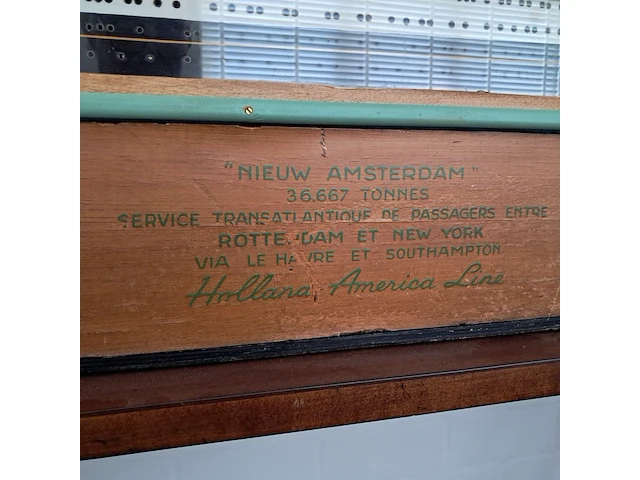 "NIEUW AMSTERDAM"
36.667 TONNES
SERVICE TRANSATLANTIQUE DE PASSAGERS ENTRE
ROTTERDAM ET NEW YORK
VIA LE HAVRE ET SOUTHAMPTON
Holland America Line